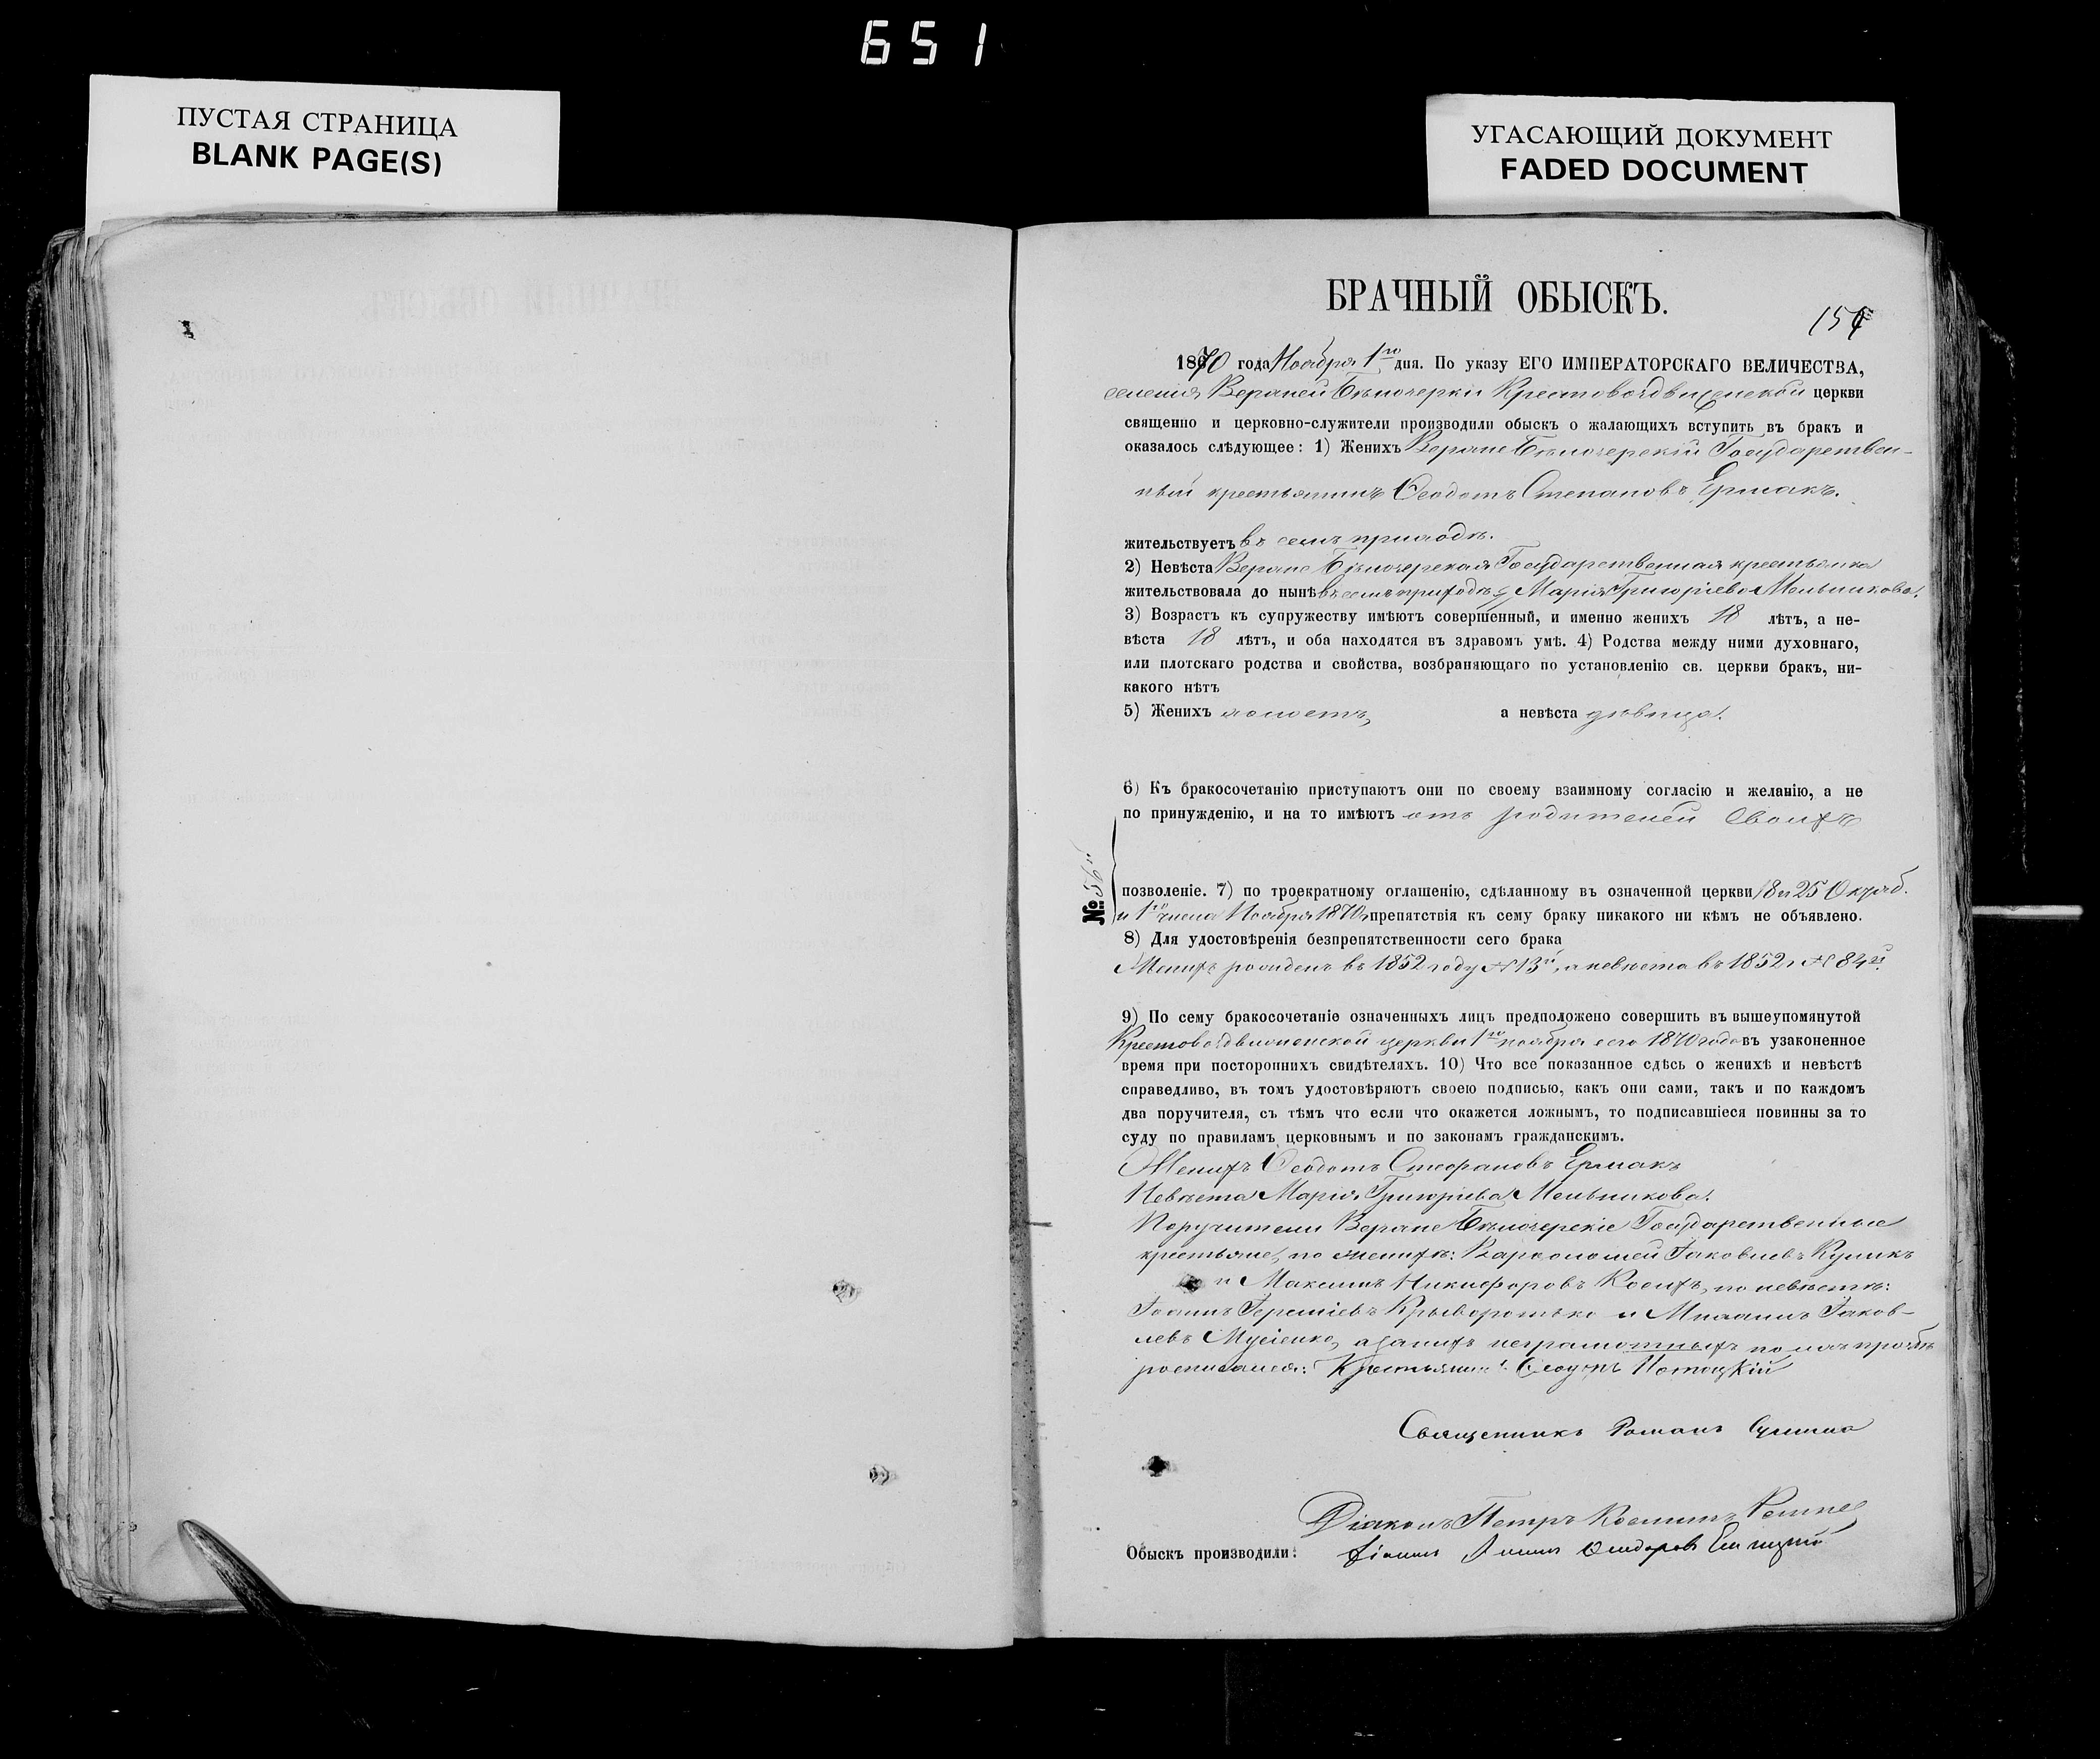 651
ПУСТАЯ СТРАНИЦА
BLANK PAGE(S)
УГАСАЮЩИЙ ДОКУМЕНТ
FADED DOCUMENT
БРАЧНЫЙ ОБЫСКЪ.
1870 года Ноября 1го дня. По указу ЕГО ИМПЕРАТОРСКАГО ВЕЛИЧЕСТВА,
селенія Верхней Бѣлозерки Крестовоздвиженской церкви
священно и церковно-служители производили обыскъ о жалающихъ вступить въ бракъ и
оказалось слѣдующее: 1) Женихъ Верхне Бѣлозерскій Государствен-
ный крестьянинъ Ѳеодотъ Степановъ Ермакъ.
жительствуетъ въ семъ приходѣ.
2) Невѣста Верхне Бѣлозерская Государственная крестьянка
жительствовала до нынѣ въ семъ приходѣ Марія Григоріева Мельникова.
3) Возрастъ къ супружеству имѣютъ совершенный, и именно женихъ 18 лѣтъ, а не-
вѣста 18 лѣтъ, и оба находятся въ здравомъ умѣ. 4) Родства между ними духовнаго,
или плотскаго родства и свойства, возбраняющаго по установленію св. церкви бракъ, ни-
какого нѣтъ
5) Женихъ холостъ, а невѣста дѣвица.
6) Къ бракосочетанію приступаютъ они по своему взаимному согласію и желанію, а не
по принужденію, и на то имѣютъ отъ родителей своихъ
№ 56й
позволеніе. 7) по троекратному оглашенію, сдѣланному въ означенной церкви 18 и 25 Октяб.
и 1го числа Ноября 1870 г. препятствія къ сему браку никакого ни кѣмъ не объявлено.
8) Для удостовѣренія безпрепятственности сего брака
Женихъ рожденъ въ 1852 году № 13й, а невѣста въ 1852 г. № 84й.
9) По сему бракосочетаніе означенныхъ лицъ предположено совершить въ вышеупомянутой
Крестовоздвиженской церкви 1го ноября сего 1870 года въ узаконенное
время при постороннихъ свидѣтеляхъ. 10) Что все показанное сдѣсь о женихѣ и невѣстѣ
справедливо, въ томъ удостовѣряютъ своею подписью, какъ они сами, такъ и по каждомъ
два поручителя, съ тѣмъ что если что окажется ложнымъ, то подписавшіеся повинны за то
суду по правиламъ церковнымъ и по законамъ гражданскимъ.
Женихъ Ѳеодотъ Стефановъ Ермакъ
Невѣста Марія Григоріева Мельникова.
Поручители Верхне Бѣлозерскіе Государственные
крестьяне, по женихѣ: Варѳоломей Іаковлевъ Куликъ
и Максимъ Никифоровъ Косихъ, по невѣстѣ:
Іоаннъ Іереміевъ Крыворотько и Михаилъ Іаков-
левъ а за нихъ неграмотныхъ по ихъ прозбѣ
росписался: Крестьянинъ Потоцкій
Священникъ Романъ
Діаконъ Петръ Косминъ
Обыскъ производили: